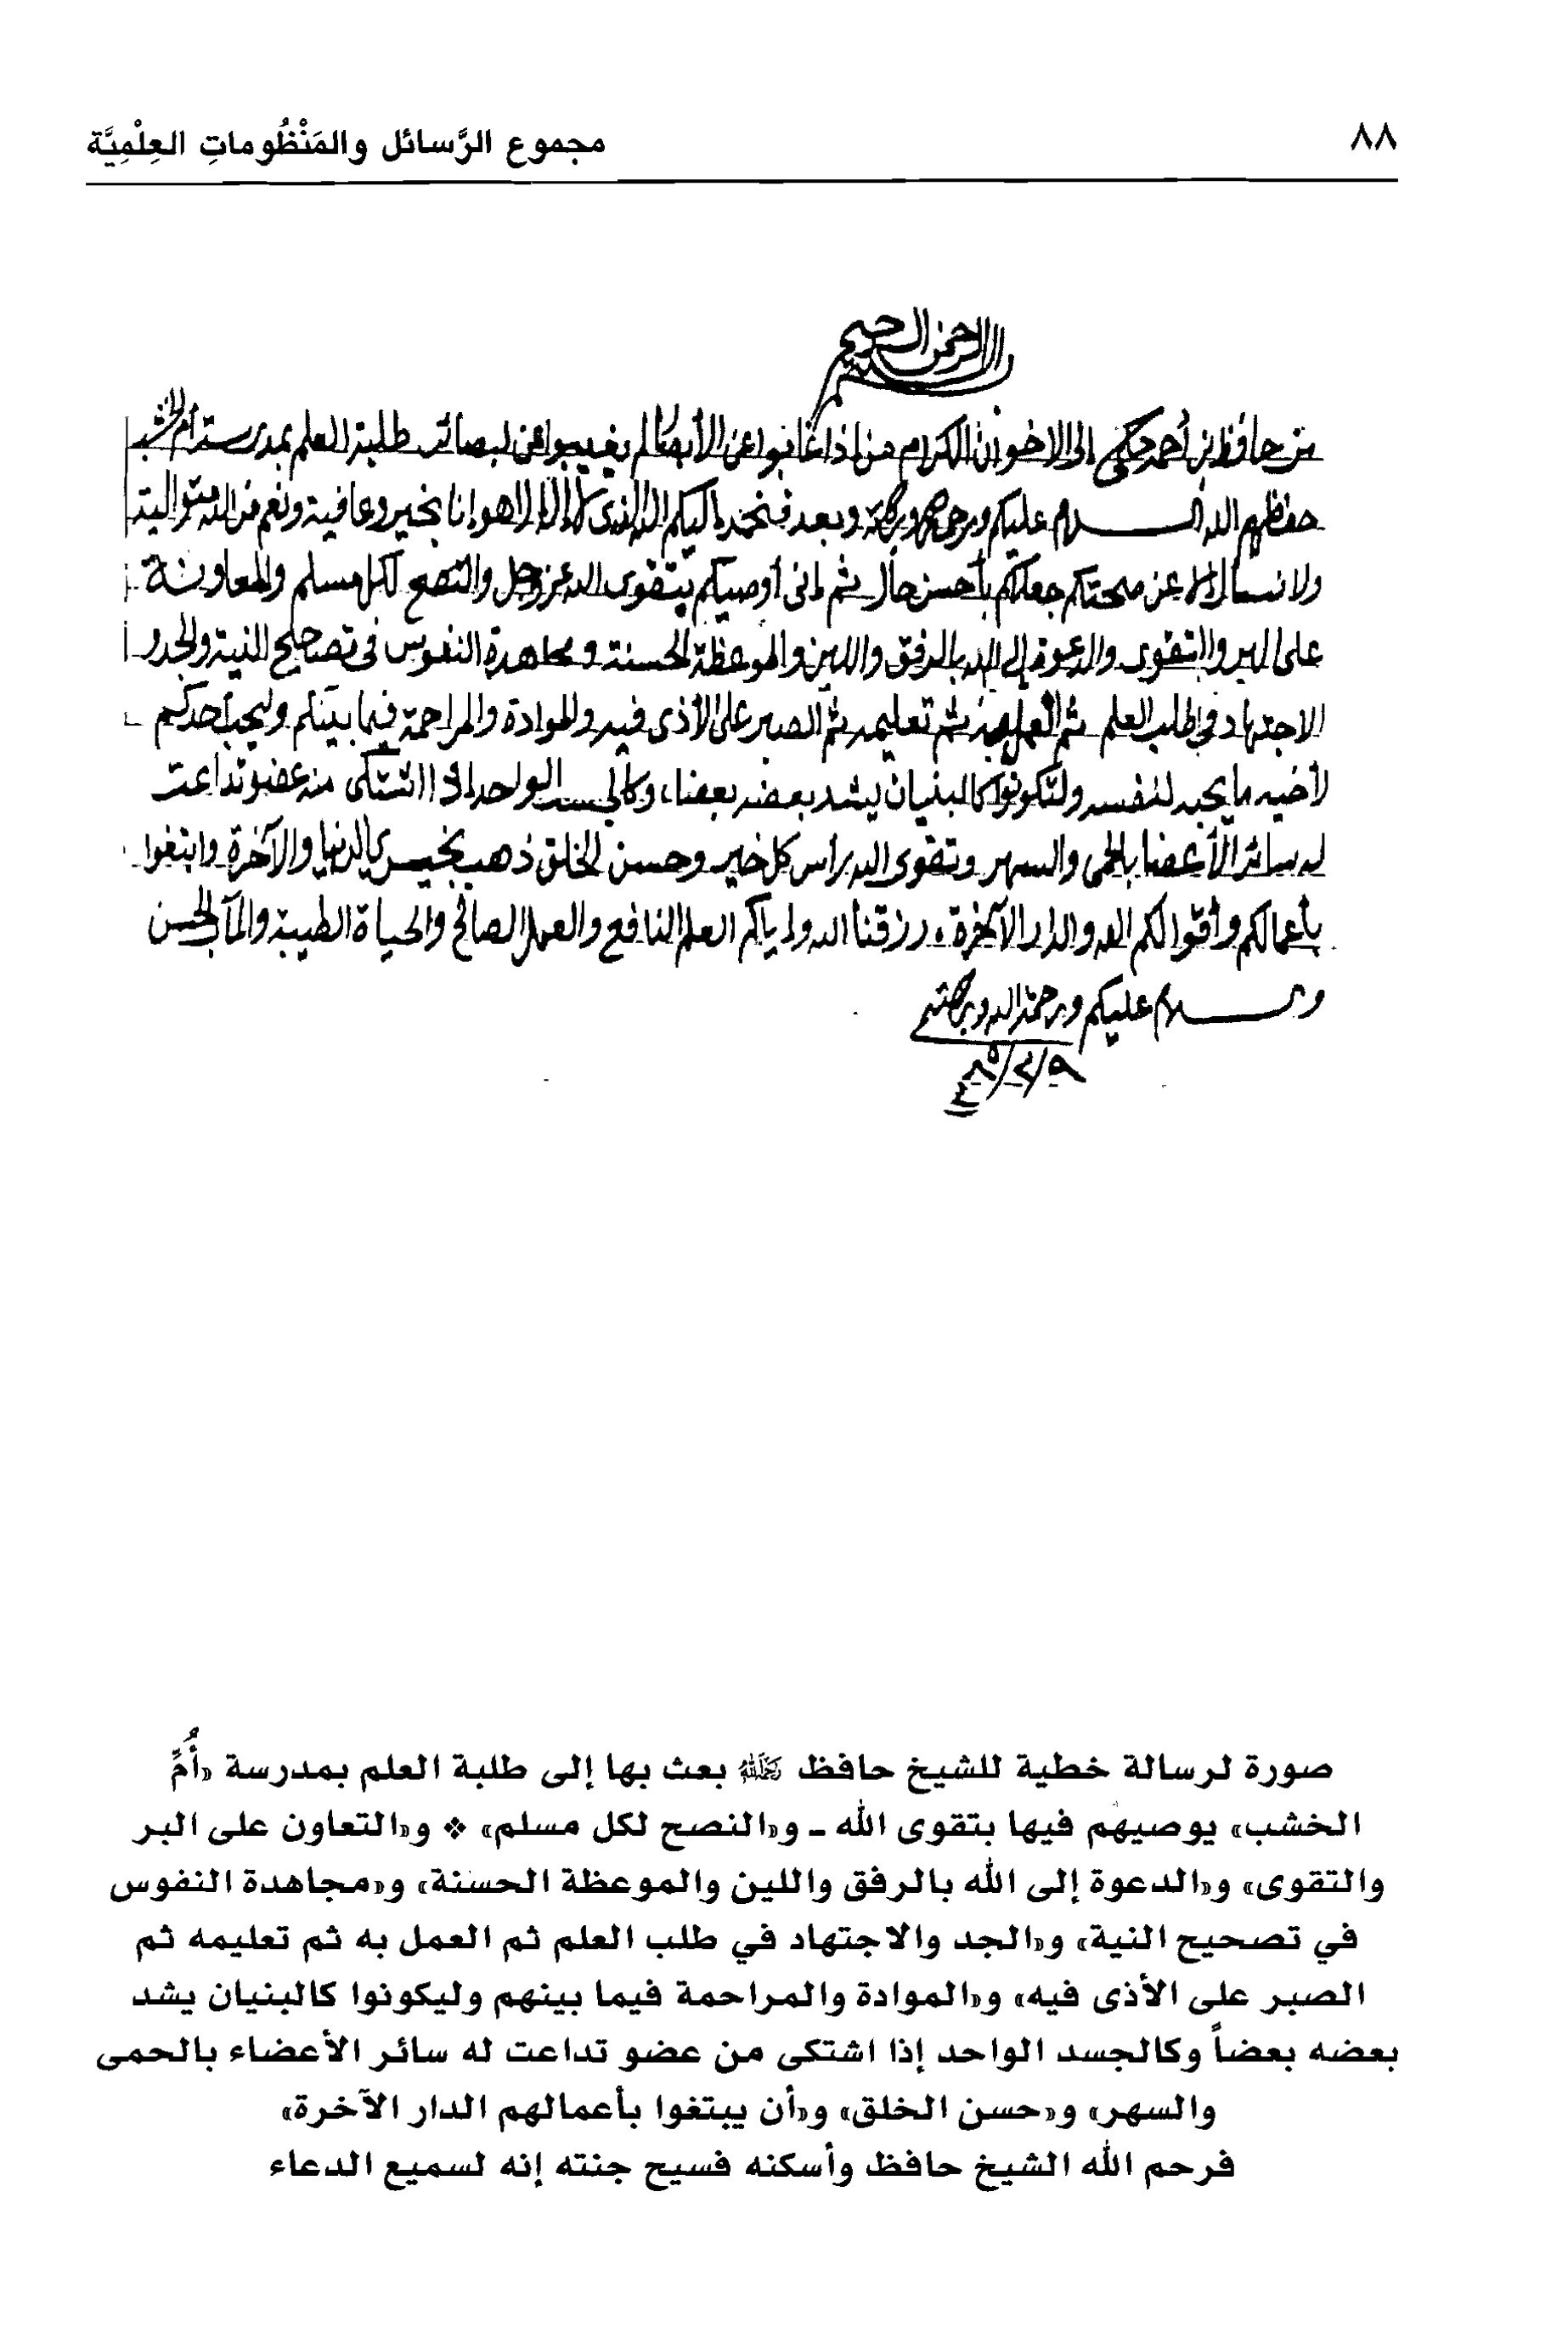 ٨٨
مجموع الرَّسائل والمَنْظُوماتِ العِلْمِيَّة
بسم الله الرحمن الرحيم
من حافظ بن أحمد حكمي إلى الاخوان الكرام من إذا غابوا عن الأبصار لم يغيبوا عن البصائر طلبة العلم بمدرسة أم الخشب
حفظهم الله السلام عليكم ورحمة الله وبركاته وبعد فنحمد اليكم الله الذي لا إله إلا هو انا بخير وعافية ونعم من الله متوالية
ولا نسأل إلا عن صحتكم جعلكم بأحسن حال ثم إني أوصيكم بتقوى الله عز وجل والنصح لكل مسلم والمعاونة
على البر والتقوى والدعوة إلى الله بالرفق واللين والموعظة الحسنة ومجاهدة النفوس في تصحيح النية والجد و
الاجتهاد في طلب العلم ثم العمل به ثم تعليمه ثم الصبر على الأذى فيه والموادة والمراحمة فيما بينكم وليحب أحدكم
لأخيه ما يحبه لنفسه ولتكونوا كالبنيان يشد بعضه بعضا، وكالجسد الواحد إذا اشتكى منه عضو تداعت
له سائر الأعضا بالحمى والسهر وتقوى الله رأس كل خير وحسن الخلق ذهب بخيري الدنيا والآخرة وابتغوا
بأعمالكم وأقوالكم الله والدار الآخرة، رزقنا الله وإياكم العلم النافع والعمل الصالح والحياة الطيبة والمآل الحسن
والسلام عليكم ورحمة الله وبركاته
صورة لرسالة خطية للشيخ حافظ رحمه الله بعث بها إلى طلبة العلم بمدرسة «أُمِّ
الخشب» يوصيهم فيها بتقوى الله ـ و«النصح لكل مسلم» ❖ و«التعاون على البر
والتقوى» و«الدعوة إلى الله بالرفق واللين والموعظة الحسنة» و«مجاهدة النفوس
في تصحيح النية» و«الجد والاجتهاد في طلب العلم ثم العمل به ثم تعليمه ثم
الصبر على الأذى فيه» و«الموادة والمراحمة فيما بينهم وليكونوا كالبنيان يشد
بعضه بعضاً وكالجسد الواحد إذا اشتكى من عضو تداعت له سائر الأعضاء بالحمى
والسهر» و«حسن الخلق» و«أن يبتغوا بأعمالهم الدار الآخرة»
فرحم الله الشيخ حافظ وأسكنه فسيح جنته إنه لسميع الدعاء